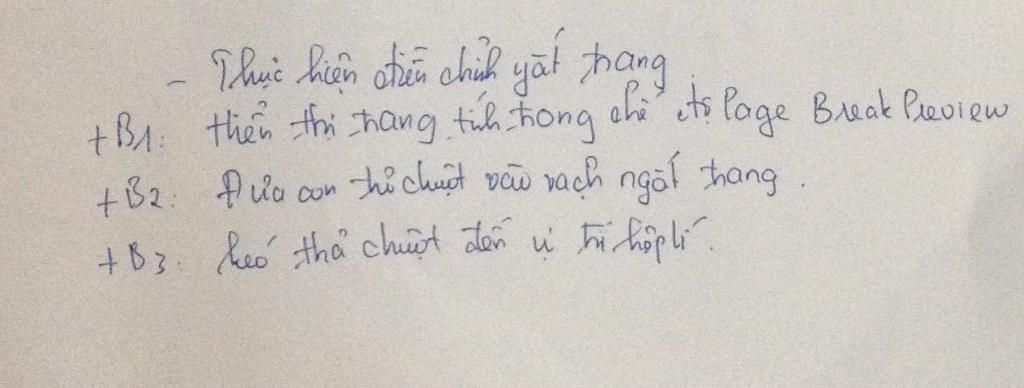 - Thực hiện điều chỉnh gắt trang
+B1: Hiển thị trang tính trong chế độ Page Break Preview
+B2: Đưa con trỏ chuột vào vạch ngắt trang.
+B3. kéo thả chuột đến vị trí hợp lí.